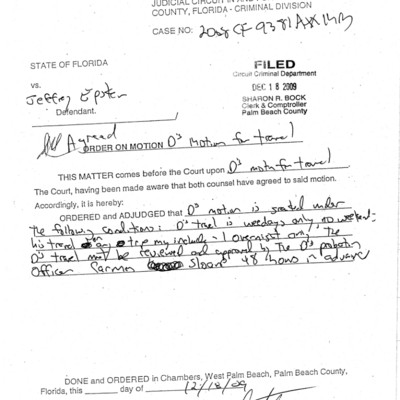 JUDICIAL CIRCUIT IN AND
COUNTY, FLORIDA - CRIMINAL DIVISION
CASE NO: 2008 CF 9381 AXX MB
STATE OF FLORIDA
vs.
Jeffrey Epstein
Defendant.
FILED
Circuit Criminal Department
DEC 18 2009
SHARON R. BOCK
Clerk & Comptroller
Palm Beach County
Agreed
ORDER ON MOTION D's Motion for travel
THIS MATTER comes before the Court upon D's motn for travel
The Court, having been made aware that both counsel have agreed to said motion.
Accordingly, it is hereby:
ORDERED and ADJUDGED that D's motion is granted under
the following conditions: D's travel is weekdays only no weekend
his travel on any trip may include 1 overnight only. The
D's travel must be reviewed and approved by the D's probation
Officer Carmen Sloan 48 hours in advance
DONE and ORDERED in Chambers, West Palm Beach, Palm Beach County,
Florida, this day of 12/18/09